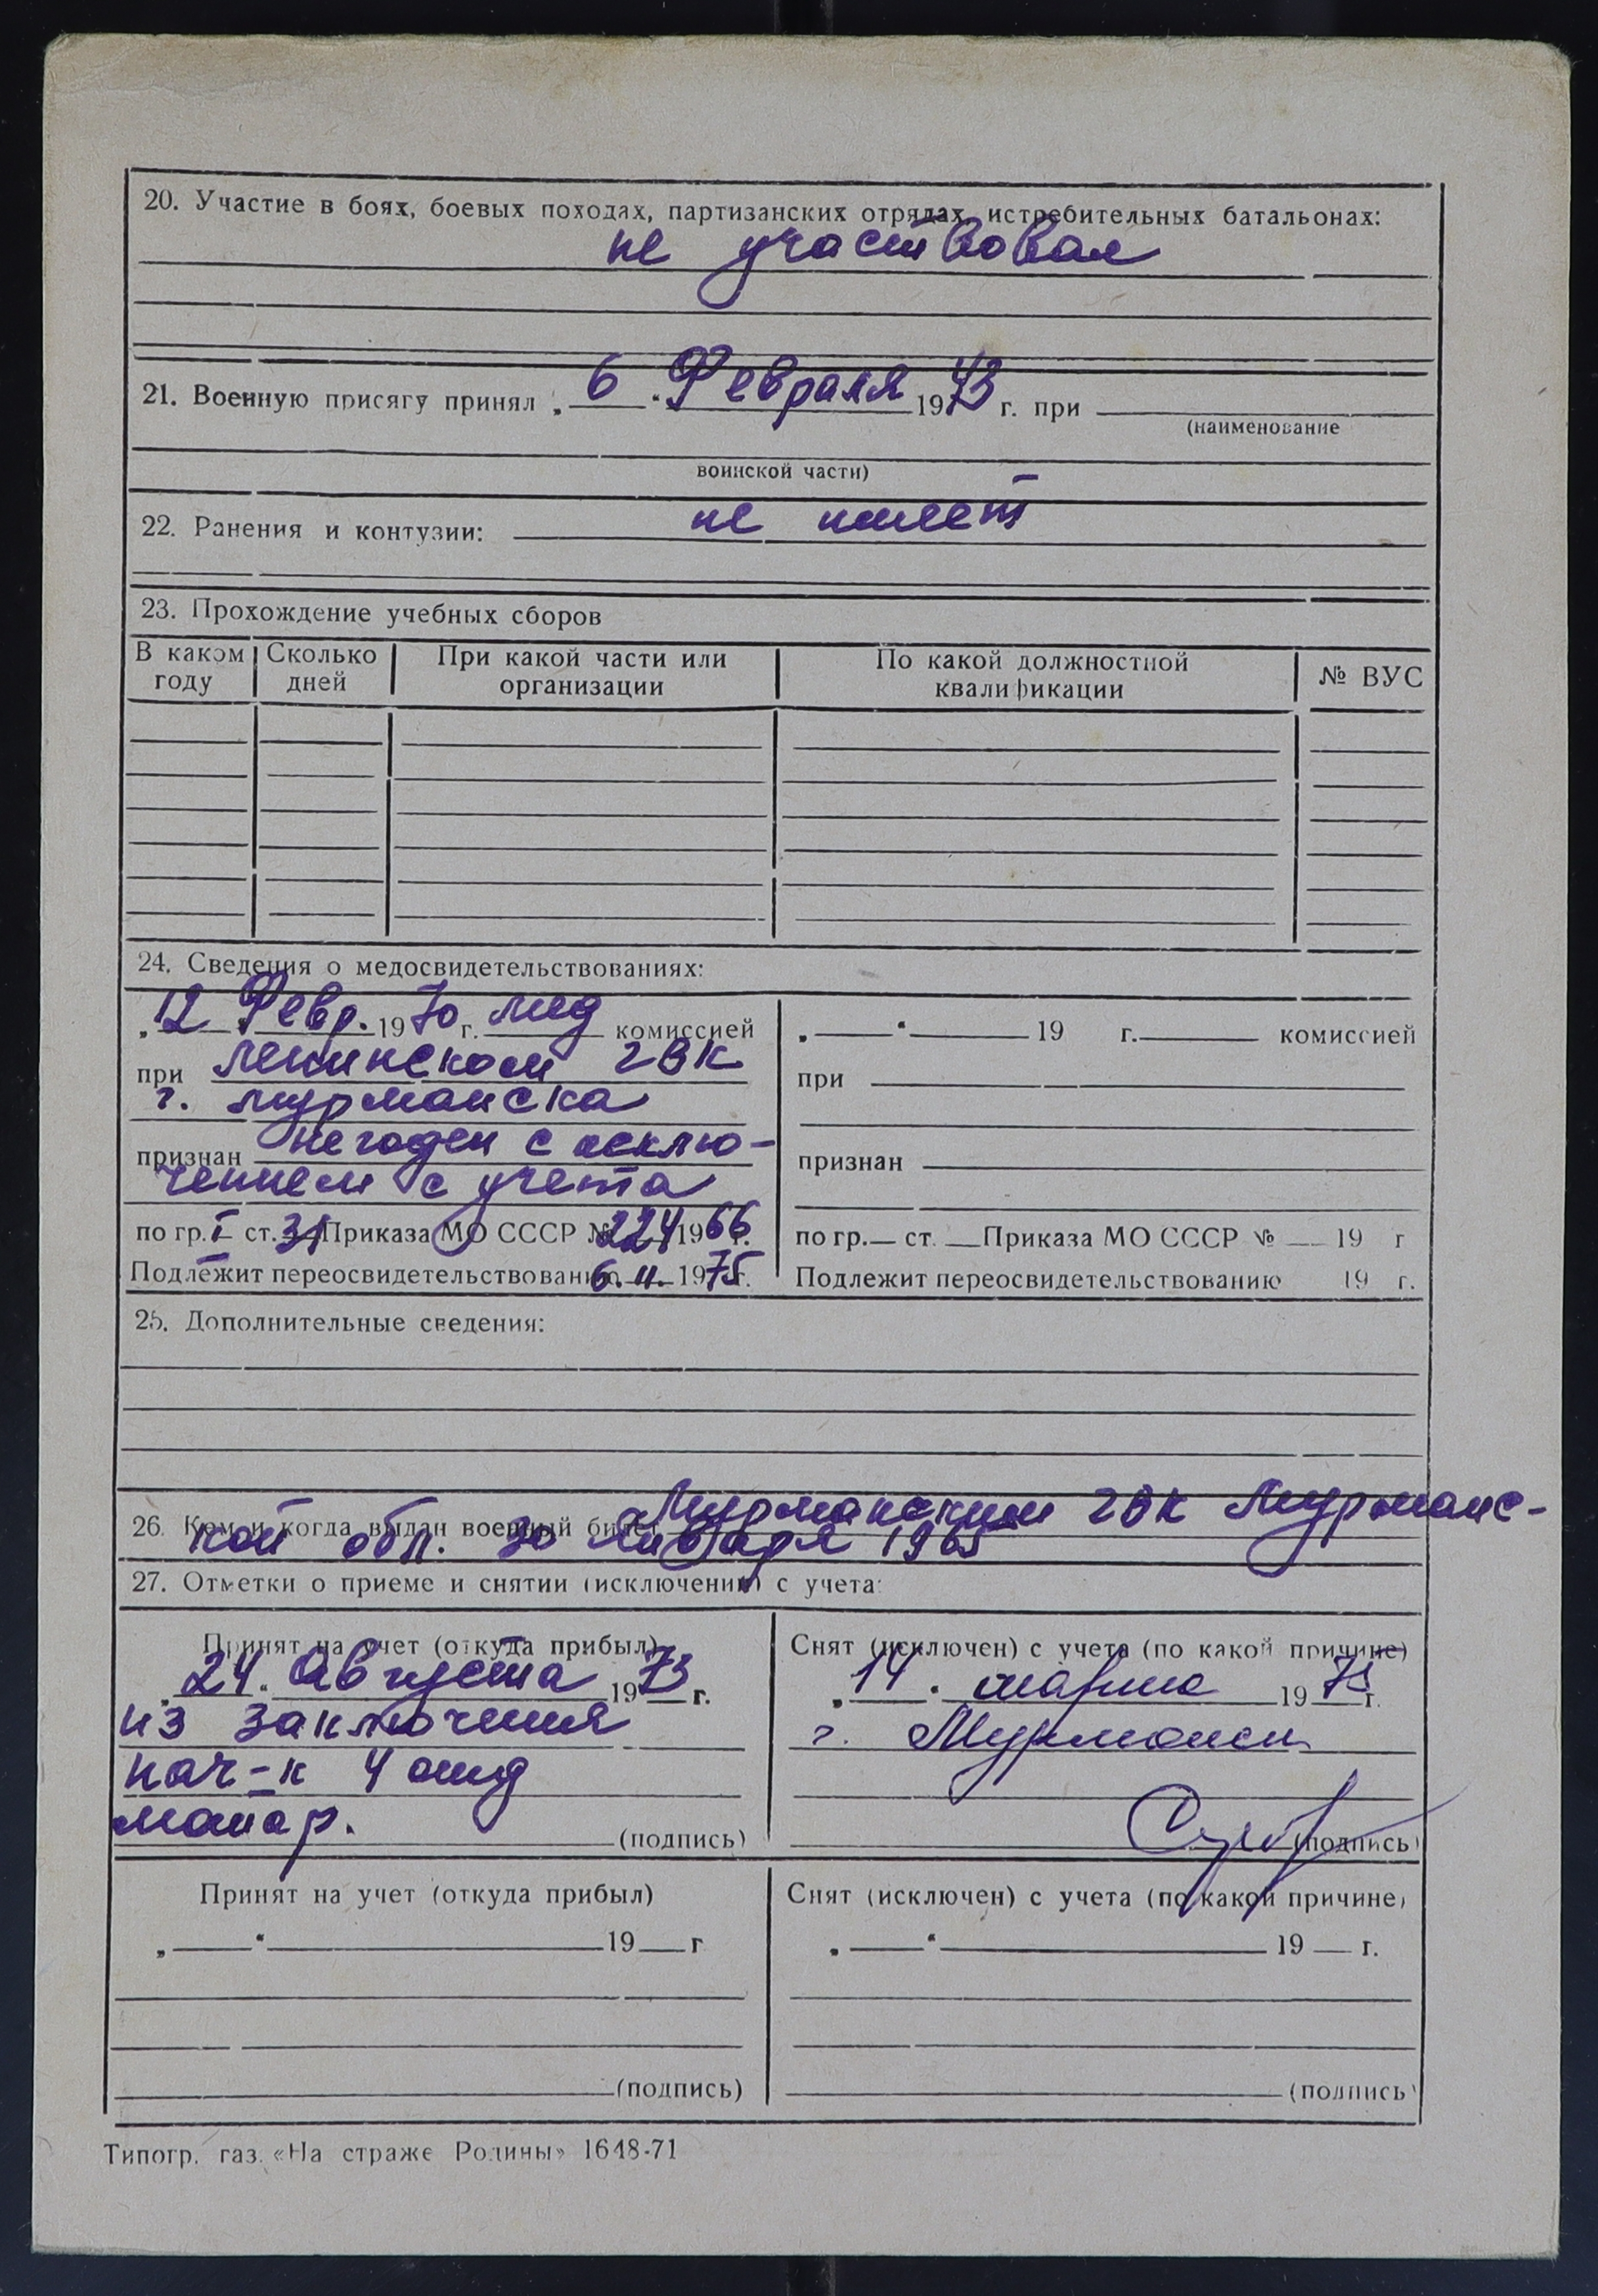 20. Участие в боях, боевых походах, партизанских отрядах, истребительных батальонах:
не участвовал
21. Военную присягу принял „ 6 “ Февраля 1973 г. при
(наименование
воинской части)
22. Ранения и контузии: не имеет
23. Прохождение учебных сборов
В каком году | Сколько дней | При какой части или организации | По какой должностной квалификации | № ВУС
24. Сведения о медосвидетельствованиях:
„ 12 “ Февр. 1970 г. мед комиссией
при Ленинском гвк
г. Мурманска
признан Негоден с исклю-
чением с учета
по гр. I ст. 31 Приказа МО СССР № 224 1966 г.
Подлежит переосвидетельствованию 6. II. 1975 г.
„ “ 19 г. комиссией
при
признан
по гр. ст. Приказа МО СССР № 19 г
Подлежит переосвидетельствованию 19 г.
25. Дополнительные сведения:
26. Кем и когда выдан военный билет Мурманским гвк Мурманс-
кой обл. 30 Января 1965
27. Отметки о приеме и снятии (исключении) с учета:
Принят на учет (откуда прибыл)
„ 24 “ Августа 1973 г.
из заключения
нач-к 4 отд
майор.
(подпись)
Снят (исключен) с учета (по какой причине)
„ 14 “ марта 1975 г.
г. Мурманск
(подпись)
Принят на учет (откуда прибыл)
„ “ 19 г
(подпись)
Снят (исключен) с учета (по какой причине)
„ “ 19 г.
(подпись)
Типогр. газ. «На страже Родины» 1648-71